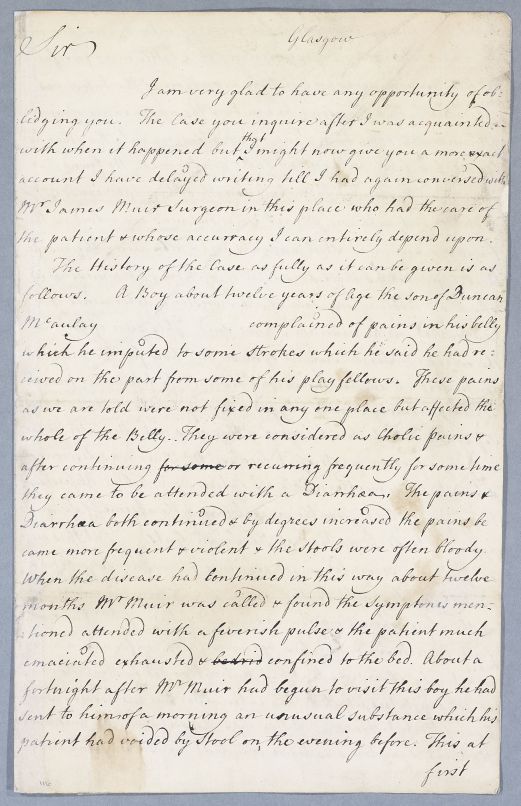 Sir
Glasgow
I am very glad to have any opportunity of ob=
ledging you. The Case you inquire after I was acquainted
with when it happened but that I might now give you a more exact
account I have delayed writing till I had again conversed with
Mr James Muir Surgeon in this place who had the care of
the patient & whose accurracy I can entirely depend upon.
The History of the Case as fully as it can be given is as
follows. A Boy about twelve years of Age the son of Duncan
McAulay complained of pains in his belly
which he imputed to some strokes which he said he had re:
ceived on the part from some of his playfellows. These pains
as we are told were not fixed in any one place but affected the
whole of the Belly. They were considered as Cholic pains &
after continuing for some or recurring frequently for some time
they came to be attended with a Diarrhæa. The pains &
Diarrhæa both continued & by degrees increased the pains be
came more frequent & violent & the stools were often bloody.
When the disease had continued in this way about twelve
months Mr Muir was called & found the symptoms men-
tioned attended with a feverish pulse & the patient much
emaciated exhausted & bedrid confined to the bed. About a
fortnight after Mr Muir had begun to visit this boy he had
sent to him of a morning an unusual substance which his
patient had voided by stool on the evening before. This at
first